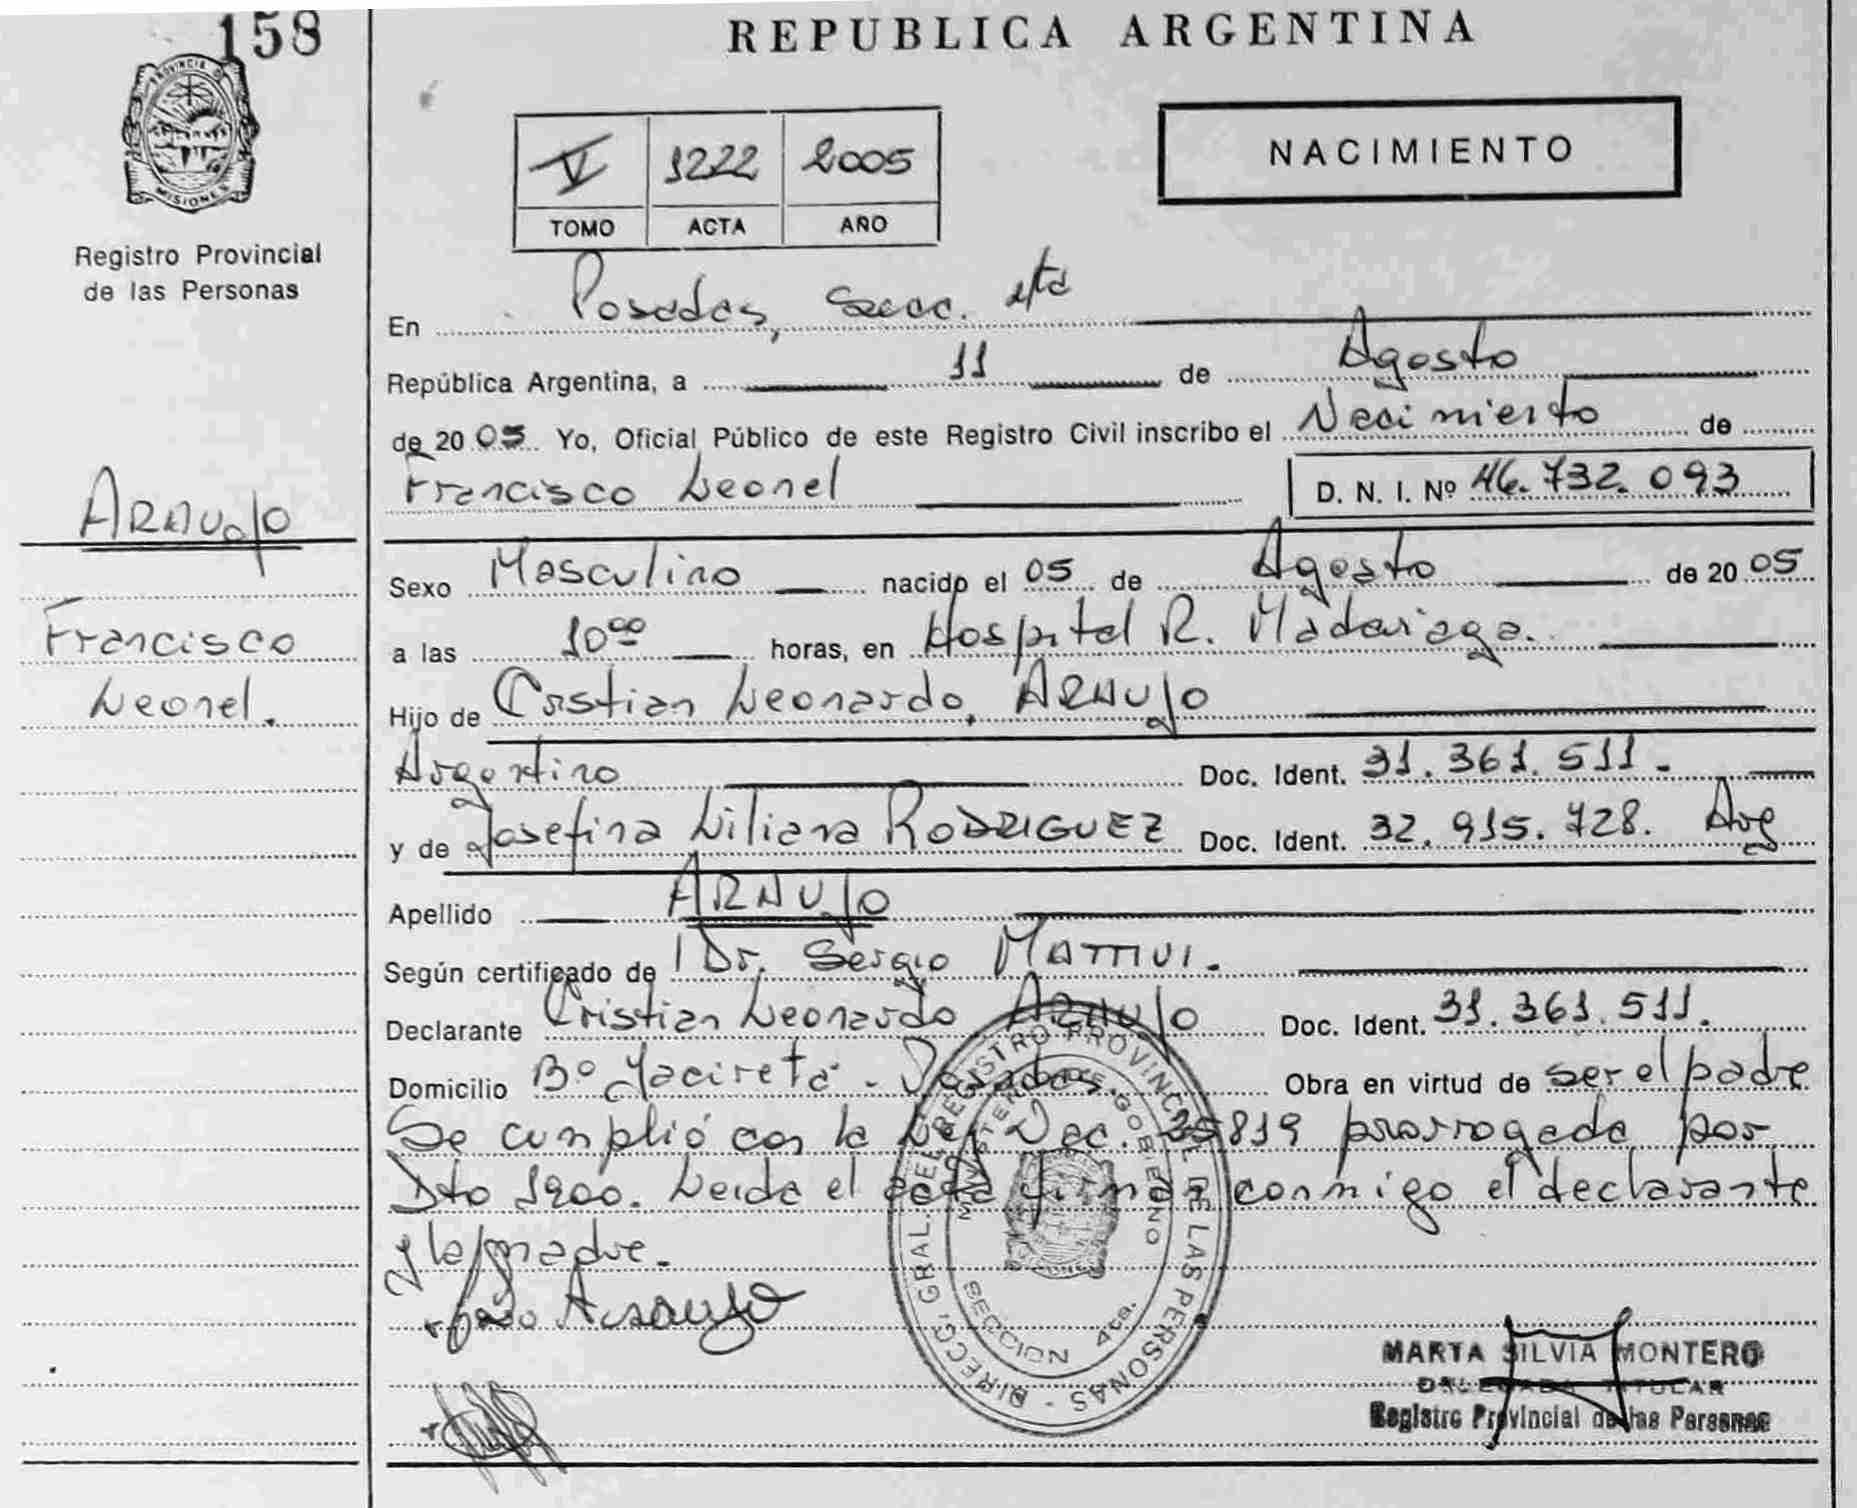 158
REPUBLICA ARGENTINA
PROVINCIA D
MISIONES
Registro Provincial
de las Personas
V 1222 2005
TOMO ACTA AÑO
NACIMIENTO
En Posadas, Secc. 4ta
República Argentina, a 11 de Agosto
de 2005 Yo, Oficial Público de este Registro Civil inscribo el Nacimiento de
Francisco Leonel D. N. I. Nº 46.732.093
ARAUJO
Francisco
Leonel.
Sexo Masculino nacido el 05 de Agosto de 2005
a las 10⁰⁰ horas, en Hospital R. Madariaga.
Hijo de Cristian Leonardo, ARAUJO
Argentino Doc. Ident. 31.361.511.
y de Josefina Liliana RODRIGUEZ Doc. Ident. 32.915.728. Arg
Apellido ARAUJO
Según certificado de Dr. Sergio
Declarante Cristian Leonardo ARAUJO Doc. Ident. 31.361.511.
Domicilio Bº Yacireta - Posadas. Obra en virtud de ser el padre
Se cumplió con la Ley Dec. 819 prorrogada por
Dto 1900. Leida el acta firman conmigo el declarante
y la madre.
Araujo
DIRECC. GRAL. DEL REGISTRO PROVINCIAL DE LAS PERSONAS -
MINISTERIO DE GOBIERNO
SECCION 4ta.
MARTA SILVIA MONTERO
DELEGADA TITULAR
Registro Provincial de las Personas